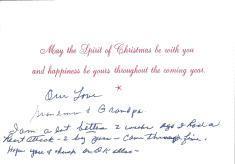 May the Spirit of Christmas be with you
and happiness be yours throughout the coming year.
Our Love
Grandma & Grandpa
I am a lot better 2 weeks ago I had a
Heart attack - 2 by pass - came through fine.
Hope you & are OK also -